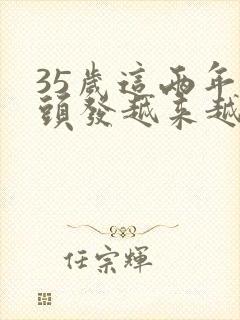 35歲這兩年
頭發越来越
任宗輝